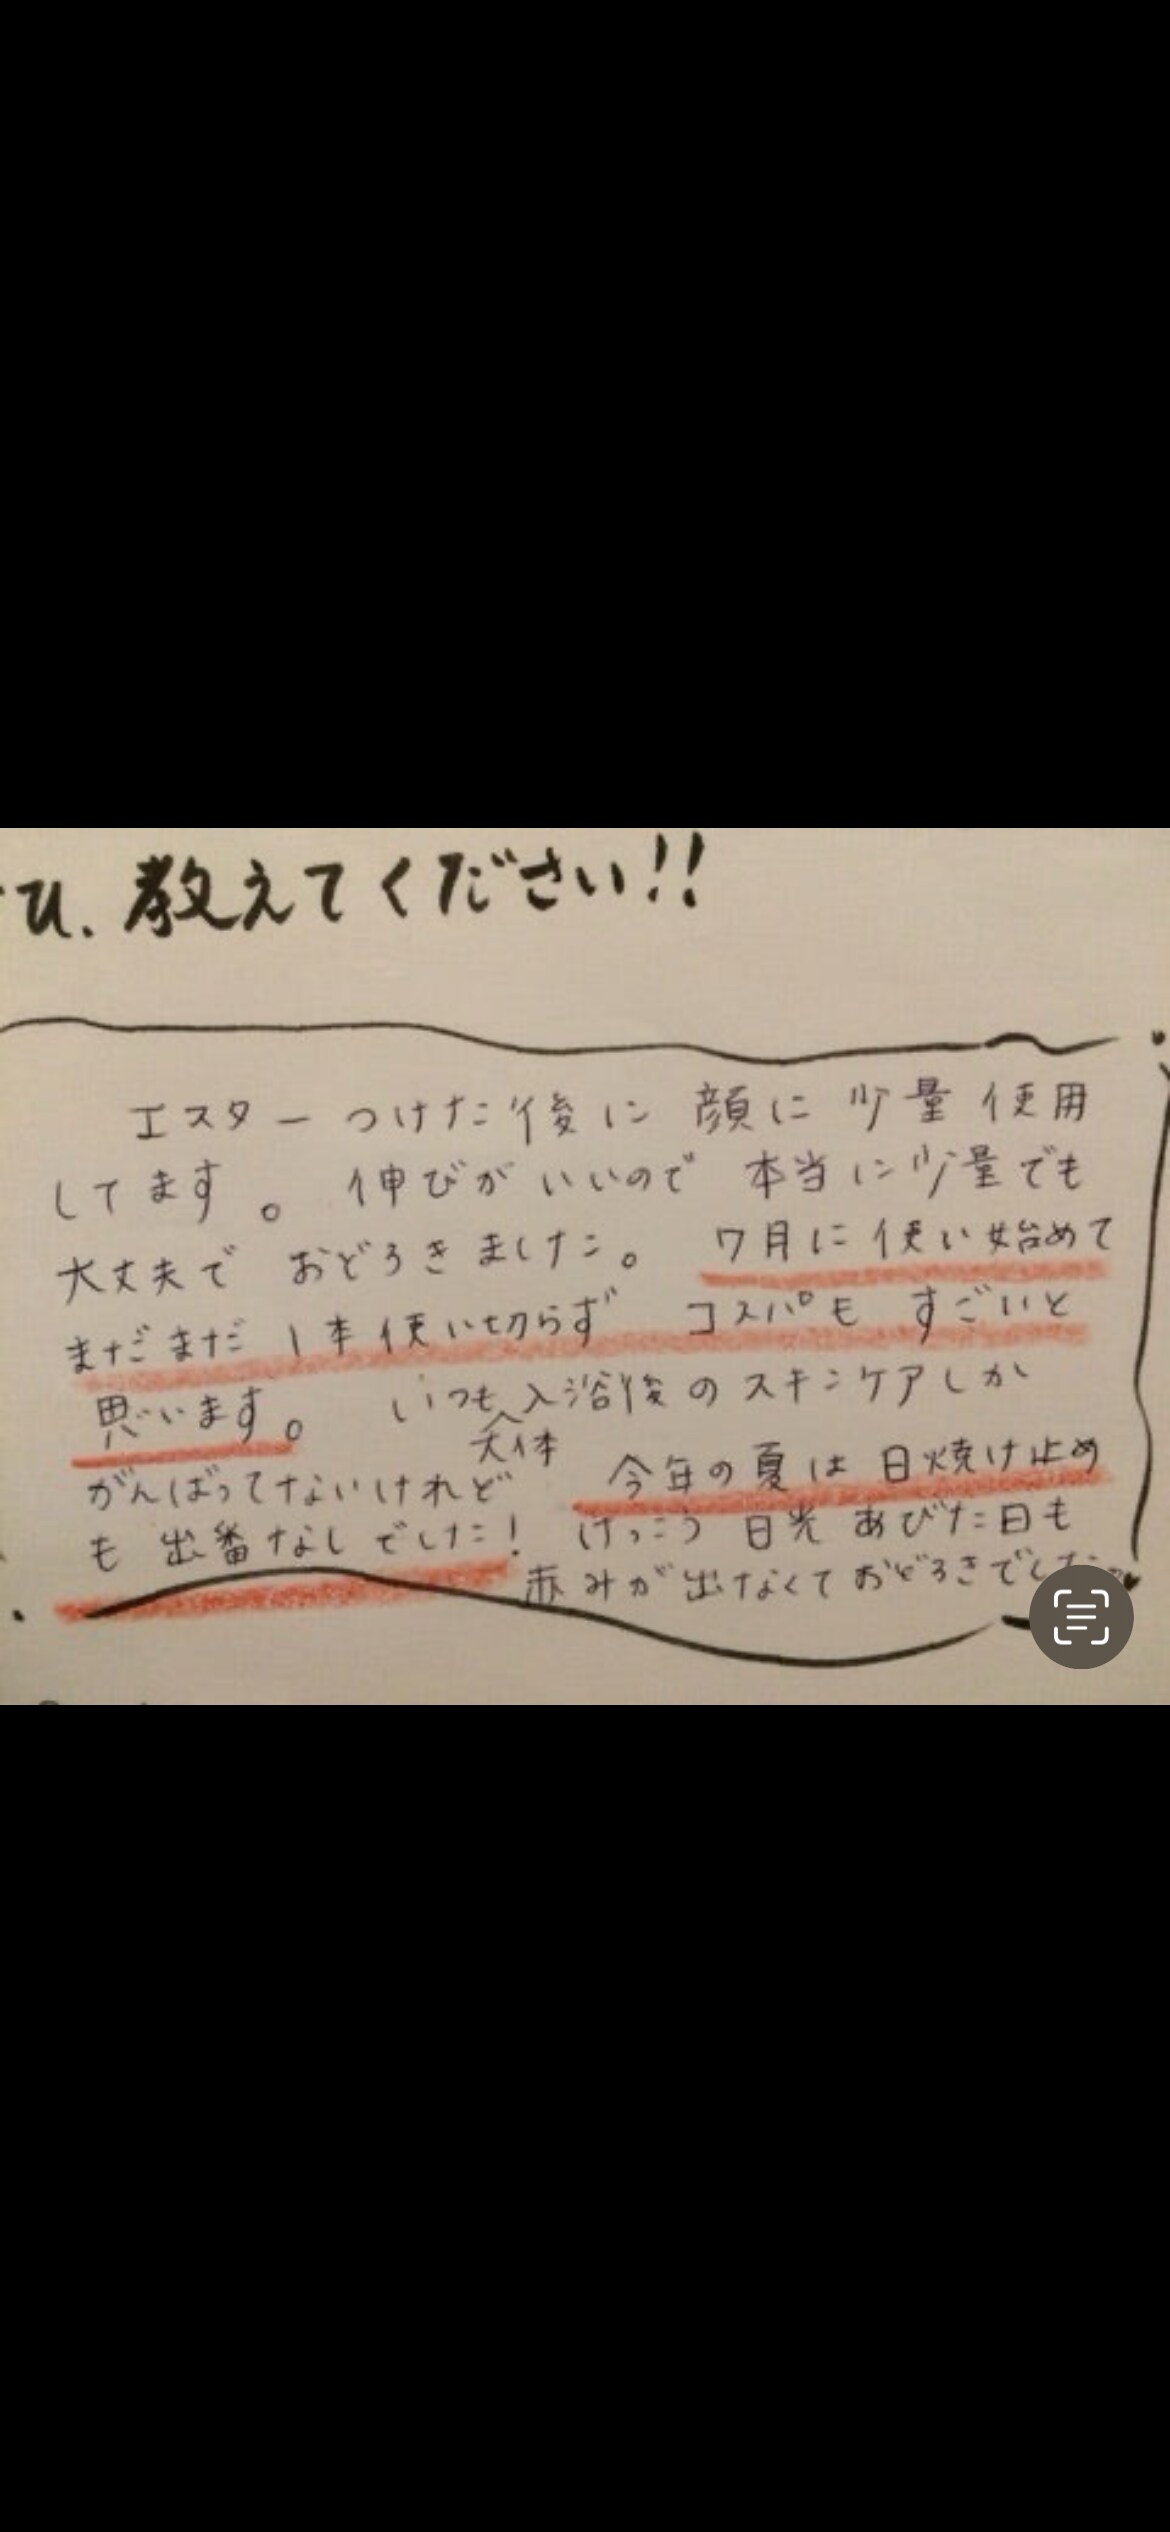 ひ、教えてください!!
エスターつけた後に 顔に 少量 使用
してます。 伸びがいいので 本当に少量でも
大丈夫で おどろきました。 7月に使い始めて
まだまだ 1本使い切らず コスパも すごいと
思います。 いつも入浴後のスキンケアしか
天体
がんばってないけれど 今年の夏は 日焼け止め
も 出番なしでした! けっこう 日光 あびた日も
赤みが出なくておどろきでした。